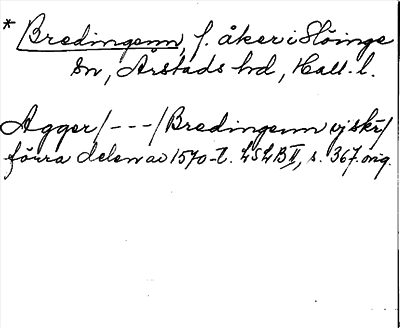 * Bredingenn, f. åker i Slöinge
sn, Årstads hd, Hall. l.
Agger/---/Bredingenn vj skr/
förra delen av 1570-t. LSLB II, s. 367. orig.